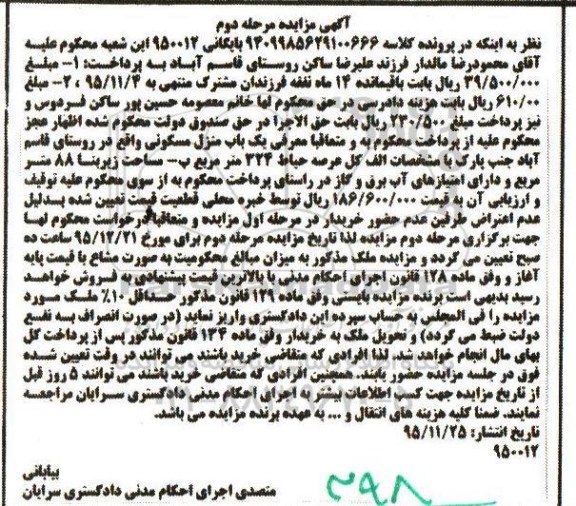 آگهی مزایده مرحله دوم
نظر به اینکه در پرونده کلاسه ۹۴۰۹۹۸۵۶۲۹۱۰۰۶۶۶ بایگانی ۹۵۰۰۱۲ این شعبه محکوم علیه
آقای محمودرضا مالدار فرزند علیرضا ساکن روستای قاسم آباد به پرداخت: ۱- مبلغ
۳۹/۵۰۰/۰۰۰ ریال بابت باقیمانده ۱۴ ماه نفقه فرزندان مشترک منتهی به ۹۵/۱۱/۴ ، ۲- مبلغ
۶۱۰/۰۰ ریال بابت هزینه دادرسی در حق محکوم لها خانم معصومه حسین پور ساکن فردوس و
نیز پرداخت مبلغ ۲۳۰/۵۰۰ ریال بابت حق الاجرا در حق صندوق دولت محکوم شده اظهار عجز
محکوم علیه از پرداخت محکوم به و متعاقبا معرفی یک باب منزل مسکونی واقع در روستای قاسم
آباد جنب پارک با مشخصات الف کل عرصه حیاط ۳۲۴ متر مربع ب- مساحت زیربنا ۸۸ متر
مربع و دارای امتیازهای آب برق و گاز در راستای پرداخت محکوم به از سوی محکوم علیه توقیف
و ارزیابی آن به قیمت ۱۸۶/۶۰۰/۰۰۰ ریال توسط خبره محلی قطعیت قیمت تعیین شده بدلیل
عدم اعتراض طرفین عدم حضور خریدار در مرحله اول مزایده و متعاقبا درخواست محکوم لها
جهت برگزاری مرحله دوم مزایده لذا تاریخ مزایده مرحله دوم برای مورخ ۹۵/۱۲/۲۱ ساعت ده
صبح تعیین می گردد و مزایده ملک مذکور به میزان مبالغ محکومیت به صورت مشاع با قیمت پایه
آغاز و وفق ماده ۱۲۸ قانون اجرای احکام مدنی با بالاترین قیمت پیشنهادی به فروش خواهد
رسید بدیهی است برنده مزایده بایستی وفق ماده ۱۲۹ قانون مذکور حداقل ۱۰٪ ملک مورد
مزایده را فی المجلس به حساب سپرده این دادگستری واریز نماید (در صورت انصراف به نفع
دولت ضبط می گردد) و تحویل ملک به خریدار وفق ماده ۱۳۴ قانون مذکور پس از پرداخت کل
بهای مال انجام خواهد شد. لذا افرادی که متقاضی خرید باشند می توانند در وقت تعیین شده
فوق در جلسه مزایده حضور یابند. همچنین افرادی که متقاضی خرید باشند می توانند ۵ روز قبل
از تاریخ مزایده جهت کسب اطلاعات بیشتر به اجرای احکام مدنی دادگستری سرایان مراجعه
نمایند. ضمنا کلیه هزینه های انتقال و ... به عهده برنده مزایده می باشد.
تاریخ انتشار: ۹۵/۱۱/۲۵
۹۵۰۰۱۲
بیابانی
متصدی اجرای احکام مدنی دادگستری سرایان
۳۹۸